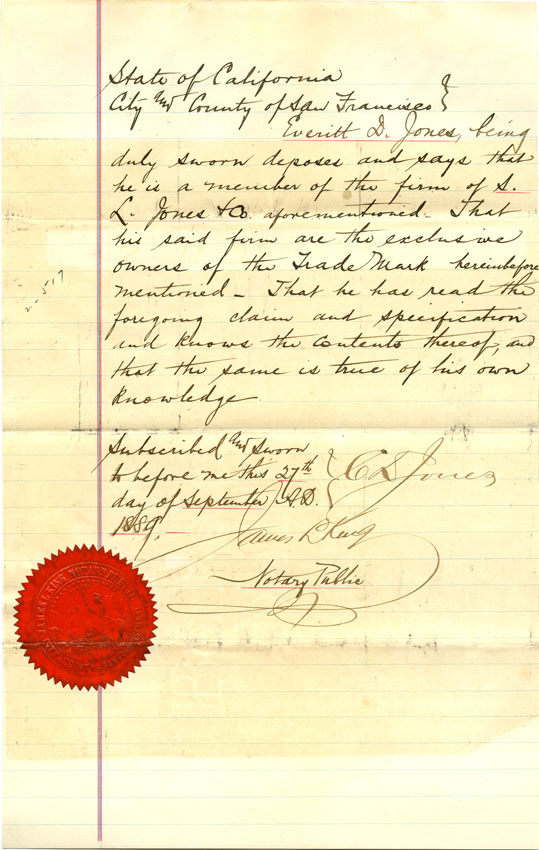 State of California
City and County of San Francisco }
Everitt D. Jones, being
duly sworn deposes and says that
he is a member of the firm of S.
L. Jones & Co. aforementioned. That
his said firm are the exclusive
owners of the Trade Mark hereinbefore
mentioned - That he has read the
foregoing claim and specification
and knows the contents thereof, and
that the same is true of his own
knowledge
Subscribed and Sworn
to before me this 27th
day of September A.D.
1889.
E D Jones
James L King
Notary Public
2-517
JAMES L. KING NOTARY PUBLIC